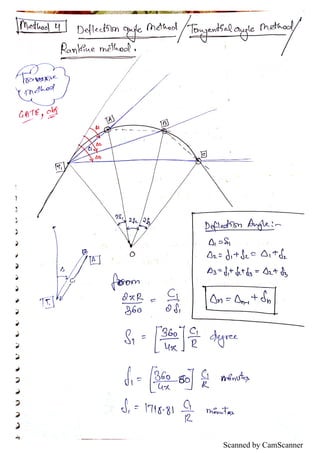 Method 4 Deflection angle Method / Tangential angle Method /
Rankine method.
method
GATE,
A
B
C
T1
Δ1
Δ2
Δ3
2δ1 2δ2 2δ3
O
Deflection Angle:-
Δ1 = δ1
Δ2 = δ1 + δ2 = Δ1 + δ2
Δ3 = δ1 + δ2 + δ3 = Δ2 + δ3
Δn = Δn-1 + δn
B
A
T1
from
2πR / 360 = C1 / 2δ1
δ1 = [360 / 4π] C1 / R degree
δ1 = [360 / 4π × 60] C1 / R minutes
δ1 = 1718.81 C1 / R minutes
Scanned by CamScanner